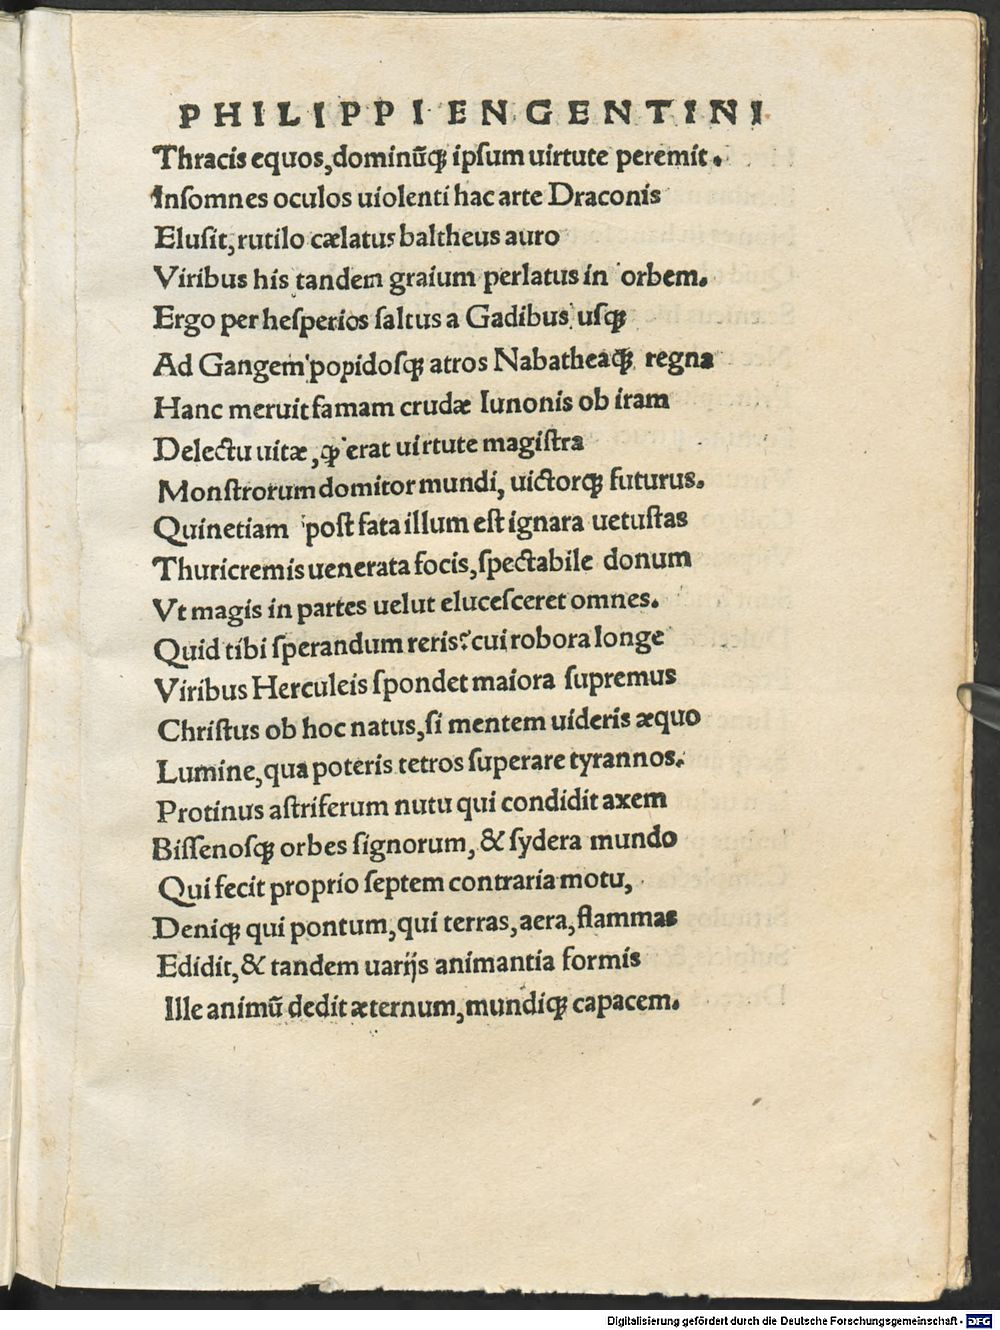 PHILIPPI ENGENTINI
Thracis equos, dominūq; ipſum uirtute peremit.
Inſomnes oculos uiolenti hac arte Draconis
Eluſit, rutilo cælatus baltheus auro
Viribus his tandem graium perlatus in orbem.
Ergo per heſperios ſaltus a Gadibus uſq;
Ad Gangem popidoſq; atros Nabatheaq; regna
Hanc meruit famam crudæ Iunonis ob iram
Delectu uitæ, ꝙ erat uirtute magiſtra
Monſtrorum domitor mundi, uictorq; futurus.
Quinetiam poſt fata illum eſt ignara uetuſtas
Thuricremis uenerata focis, ſpectabile donum
Vt magis in partes uelut eluceſceret omnes.
Quid tibi ſperandum reris? cui robora longe
Viribus Herculeis ſpondet maiora ſupremus
Chriſtus ob hoc natus, ſi mentem uideris æquo
Lumine, qua poteris tetros ſuperare tyrannos.
Protinus aſtriferum nutu qui condidit axem
Biſſenoſq; orbes ſignorum, & ſydera mundo
Qui fecit proprio ſeptem contraria motu,
Deniq; qui pontum, qui terras, aera, flammas
Edidit, & tandem uarijs animantia formis
Ille animū dedit æternum, mundiq; capacem.
Digitalisierung gefördert durch die Deutsche Forschungsgemeinschaft - DFG